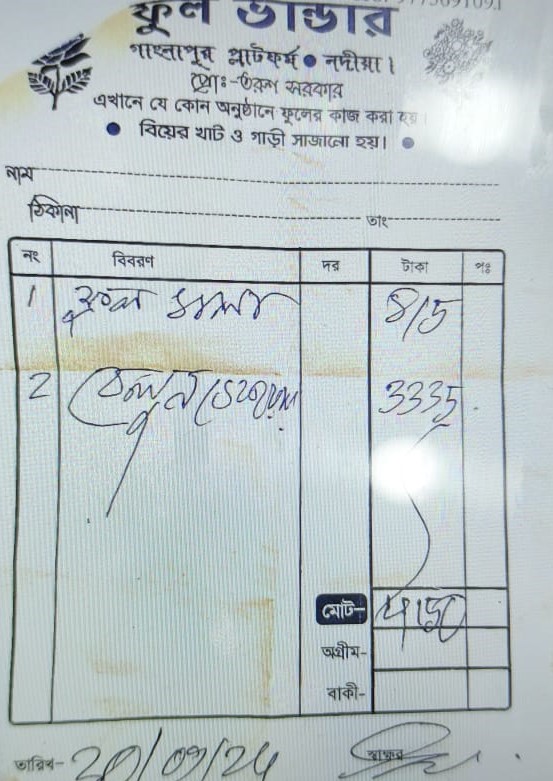 ফুল ভান্ডার
গাংনাপুর প্লাটফর্ম ● নদীয়া।
প্রোঃ-তরুন সরকার
এখানে যে কোন অনুষ্ঠানে ফুলের কাজ করা হয়।
● বিয়ের খাট ও গাড়ী সাজানো হয়। ●
নাম
ঠিকানা তাং
নং বিবরণ দর টাকা পঃ
1 ফুল মালা 815
2 বেলুন ডেকোরেশন 3335
মোট- 4150
অগ্রীম-
বাকী-
তারিখ- 20/09/24 স্বাক্ষর